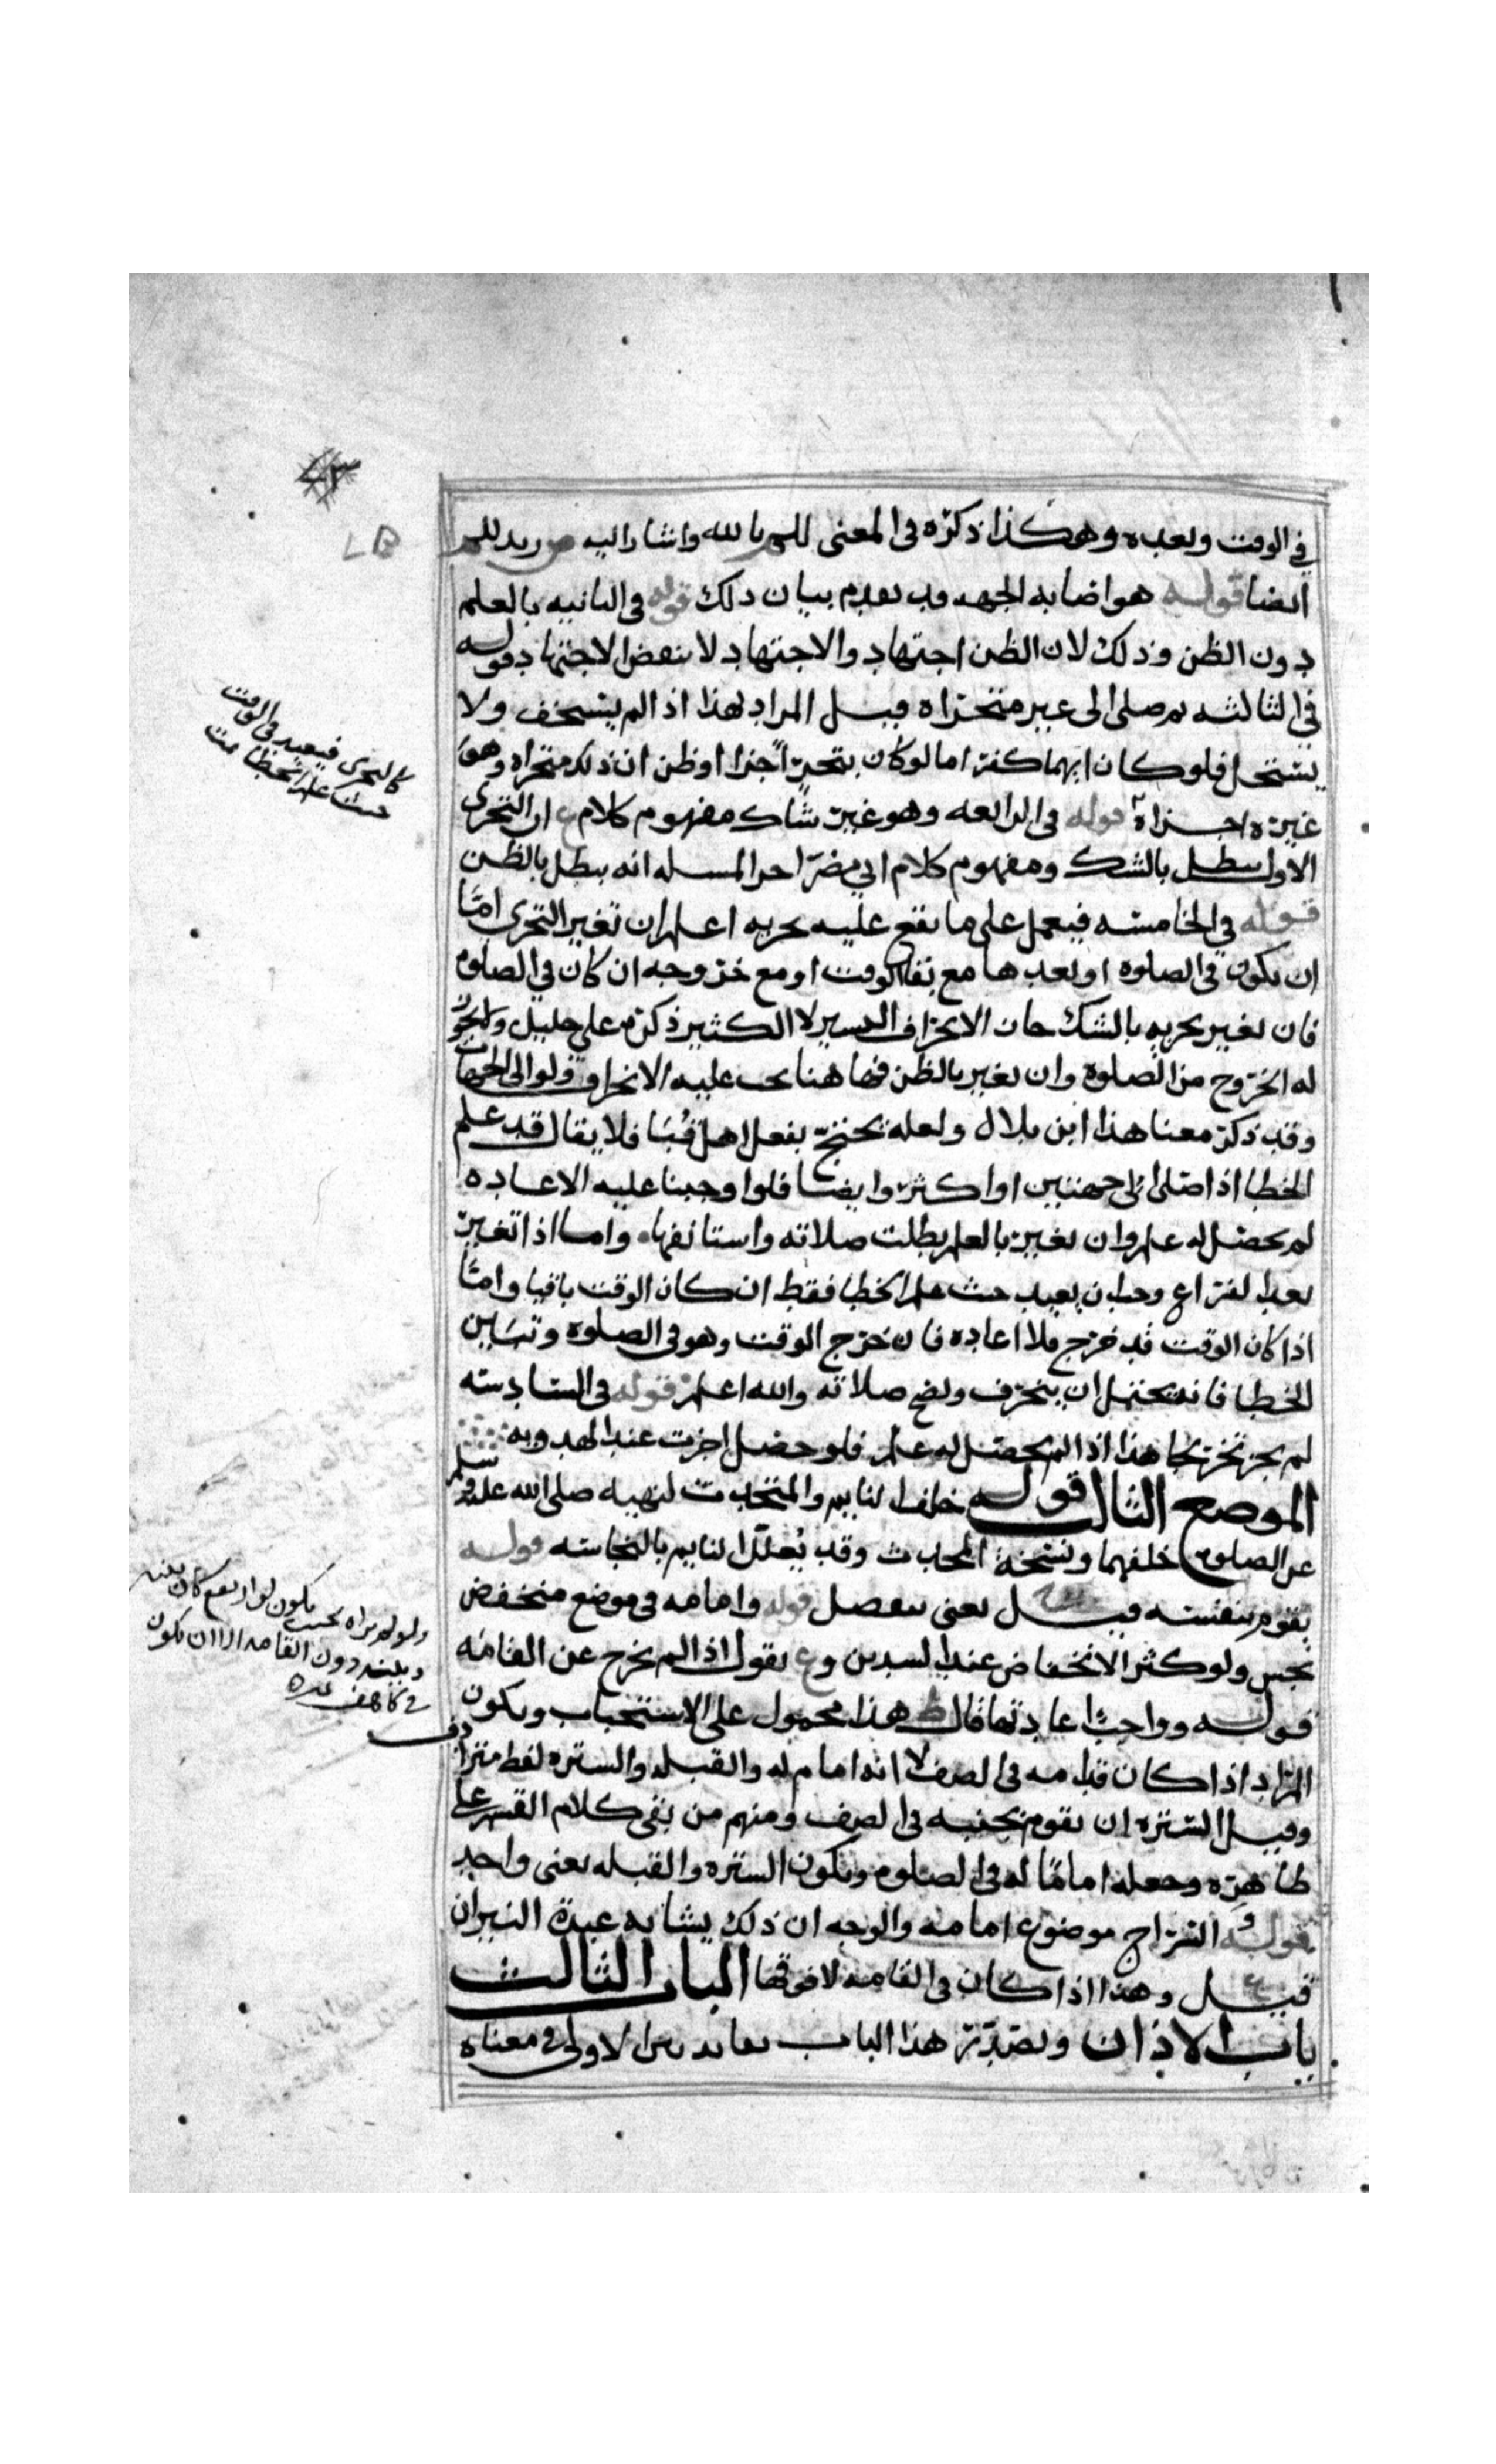 في الوقت وبعده وهكذا ذكره في المعنى للمؤيد بالله واشار اليه ص زيد للم
ايضا قوله هو اصابه الجهه وقد تقدم بيان ذلك قوله في الثانيه بالعلم
دون الظن وذلك لان الظن اجتهاد والاجتهاد لا ينقض الاجتهاد قوله
في الثالثه من صلى الى غير متحراه قيل المراد بهذا اذا لم يستخف ولا
يستحل فلو كان ايهما كفر اما لو كان بتحرٍّ اجزا او ظن ان ذلك متحراه وهو
غيره اجزاه قوله في الرابعه وهو غير شاك مفهوم كلام ع ان التحرى
الاول يبطل بالشك ومفهوم كلام ابي مضر اخر المسله انه يبطل بالظن
قوله في الخامسه فيعمل على ما يقع عليه تحريه اعلم ان تغير التحرى امّا
ان يكون في الصلوه او بعدها مع بقا الوقت او مع خروجه ان كان في الصلوه
فان تغير تحريه بالشك جاز الانحراف اليسير لا الكثير ذكره علي خليل ويجوز
له الخروج من الصلوة وان تغير بالظن فها هنا يجب عليه الانحراف ولو الى الجهات
وقد ذكر معنا هذا ابن بلال ولعله يحتج بفعل اهل قُبَا فلا يقال قد علم
الخطا اذا صلى الى جهتين او اكثر وايضا فلو اوجبنا عليه الاعاده
لم يحصل له علم وان تغير بالعلم بطلت صلاته واستانفها واما اذا تغير
بعد الفراغ وجب ان يعيد حيث علم الخطا فقط ان كان الوقت باقيا وامّا
اذا كان الوقت قد خرج فلا اعاده فان خرج الوقت وهو في الصلوه وتباين
الخطا فانه يحتمل ان ينحرف وتصح صلاته والله اعلم قوله في السادسه
لم يجز تحر بحا هذا اذا لم يحصل له علم فلو حصل اجزت عند الهدويه
الموضع الثالث قوله خلف النايم والمتحدث لنهيه صلى الله عليه وسلم
عن الصلوة خلفهما ونسخة المحدث وقد يُعلّل النايم بالنجاسه قوله
يقوم بنفسه قيل يعنى بمفصل قوله وامامه في موضع منخفض
نجس ولو كثر الانخفاض عند السيدين وع يقول اذا لم يخرج عن القامه
قوله وواجبٌ اعادتها قال ط هذا محمول على الاستحباب ويكون
المراد اذا كان قدامه في الصف لا انه امام له والقبله والستره لفظ مترادف
وقيل الستره ان يقوم بجنبه في الصف ومنهم من بقى كلام القسم على
ظاهره وجعله اماما له في الصلوه ويكون الستره والقبله بمعنى واحد
قوله والسراج موضوع امامه والوجه ان ذلك يشابه عبدة النيران
قيل وهذا اذا كان في القامه لا فوقها الباب الثالث
باب الاذان ونصدّر هذا الباب بفايدتين الاولى في معناه
كالتحرى فيعيد في الوقت
حيث علم الخطا تمت
ولو لم يره بحيث يكون لو ارتفع كان بينه
وبينه دون القامه الا ان يكون